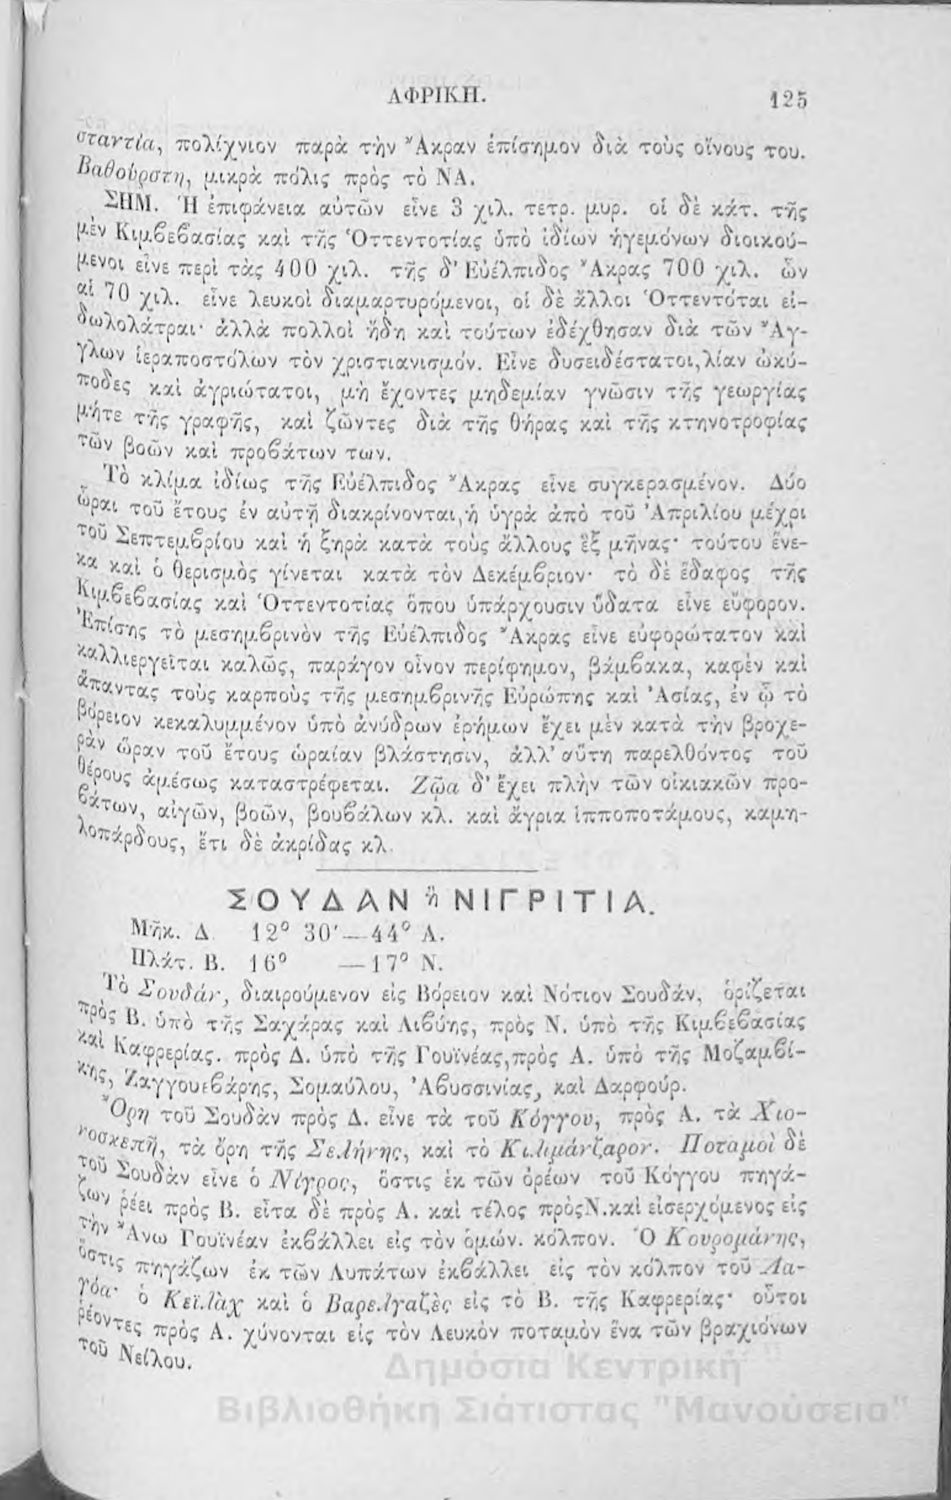 ΑΦΡΙΚΗ. 125
σταντία, πολίχνιον παρὰ τὴν Ἄκραν ἐπίσημον διὰ τοὺς οἴνους του.
Βαθούρστη, μικρὰ πόλις πρὸς τὸ ΝΑ.
ΣΗΜ. Ἡ ἐπιφάνεια αὐτῶν εἶνε 3 χιλ. τετρ. μυρ. οἱ δὲ κάτ. τῆς
μὲν Κιμβεβασίας καὶ τῆς Ὀττεντοτίας ὑπὸ ἰδίων ἡγεμόνων διοικού-
μενοι εἶνε περὶ τὰς 400 χιλ. τῆς δ' Εὐέλπιδος Ἄκρας 700 χιλ. ὧν
αἱ 70 χιλ. εἶνε λευκοὶ διαμαρτυρόμενοι, οἱ δὲ ἄλλοι Ὀττεντόται εἰ-
δωλολάτραι· ἀλλὰ πολλοὶ ἤδη καὶ τούτων ἐδέχθησαν διὰ τῶν Ἄγ-
γλων ἱεραποστόλων τὸν χριστιανισμόν. Εἶνε δυσειδέστατοι, λίαν ὠκύ-
ποδες καὶ ἀγριώτατοι, μὴ ἔχοντες μηδεμίαν γνῶσιν τῆς γεωργίας
μήτε τῆς γραφῆς, καὶ ζῶντες διὰ τῆς θήρας καὶ τῆς κτηνοτροφίας
τῶν βοῶν καὶ προβάτων των.
Τὸ κλίμα ἰδίως τῆς Εὐέλπιδος Ἄκρας εἶνε συγκερασμένον. Δύο
ὧραι τοῦ ἔτους ἐν αὐτῇ διακρίνονται, ἡ ὑγρὰ ἀπὸ τοῦ Ἀπριλίου μέχρι
τοῦ Σεπτεμβρίου καὶ ἡ ξηρὰ κατὰ τοὺς ἄλλους ἓξ μῆνας· τούτου ἕνε-
κα καὶ ὁ θερισμὸς γίνεται κατὰ τὸν Δεκέμβριον· τὸ δὲ ἔδαφος τῆς
Κιμβεβασίας καὶ Ὀττεντοτίας ὅπου ὑπάρχουσιν ὕδατα εἶνε εὔφορον.
Ἐπίσης τὸ μεσημβρινὸν τῆς Εὐέλπιδος Ἄκρας εἶνε εὐφορώτατον καὶ
καλλιεργεῖται καλῶς, παράγον οἶνον περίφημον, βάμβακα, καφὲν καὶ
ἅπαντας τοὺς καρποὺς τῆς μεσημβρινῆς Εὐρώπης καὶ Ἀσίας, ἐν ᾧ τὸ
βόρειον κεκαλυμμένον ὑπὸ ἀνύδρων ἐρήμων ἔχει μὲν κατὰ τὴν βροχε-
ρὰν ὥραν τοῦ ἔτους ὡραίαν βλάστησιν, ἀλλ' αὕτη παρελθόντος τοῦ
θέρους ἀμέσως καταστρέφεται. Ζῶα δ' ἔχει πλὴν τῶν οἰκιακῶν προ-
βάτων, αἰγῶν, βοῶν, βουβάλων κλ. καὶ ἄγρια ἱπποποτάμους, καμη-
λοπάρδους, ἔτι δὲ ἀκρίδας κλ.
ΣΟΥΔΑΝ ἢ ΝΙΓΡΙΤΙΑ.
Μῆκ. Δ 12° 30'—44° Α.
Πλάτ. Β. 16° —17° Ν.
Τὸ Σουδάν, διαιρούμενον εἰς Βόρειον καὶ Νότιον Σουδάν, ὁρίζεται
πρὸς Β. ὑπὸ τῆς Σαχάρας καὶ Λιβύης, πρὸς Ν. ὑπὸ τῆς Κιμβεβασίας
καὶ Καφρερίας. πρὸς Δ. ὑπὸ τῆς Γουϊνέας, πρὸς Α. ὑπὸ τῆς Μοζαμβί-
κης, Ζαγγουεβάρης, Σομαύλου, Ἀβυσσινίας, καὶ Δαρφούρ.
Ὄρη τοῦ Σουδὰν πρὸς Δ. εἶνε τὰ τοῦ Κόγγου, πρὸς Α. τὰ Χιο-
νοσκεπῆ, τὰ ὄρη τῆς Σελήνης, καὶ τὸ Κιλιμάνζαρον. Ποταμοὶ δὲ
τοῦ Σουδὰν εἶνε ὁ Νίγρος, ὅστις ἐκ τῶν ὀρέων τοῦ Κόγγου πηγά-
ζων ῥέει πρὸς Β. εἶτα δὲ πρὸς Α. καὶ τέλος πρὸς Ν. καὶ εἰσερχόμενος εἰς
τὴν Ἄνω Γουϊνέαν ἐκβάλλει εἰς τὸν ὁμών. κόλπον. Ὁ Κουρομάνης,
ὅστις πηγάζων ἐκ τῶν Λυπάτων ἐκβάλλει εἰς τὸν κόλπον τοῦ Λα-
γόα· ὁ Κεϊλὰχ καὶ ὁ Βαρελγαζὲς εἰς τὸ Β. τῆς Καφρερίας· οὗτοι
ῥέοντες πρὸς Α. χύνονται εἰς τὸν Λευκὸν ποταμὸν ἕνα τῶν βραχιόνων
τοῦ Νείλου.
Δημόσια Κεντρική
Βιβλιοθήκη Σιάτιστας "Μανούσεια"